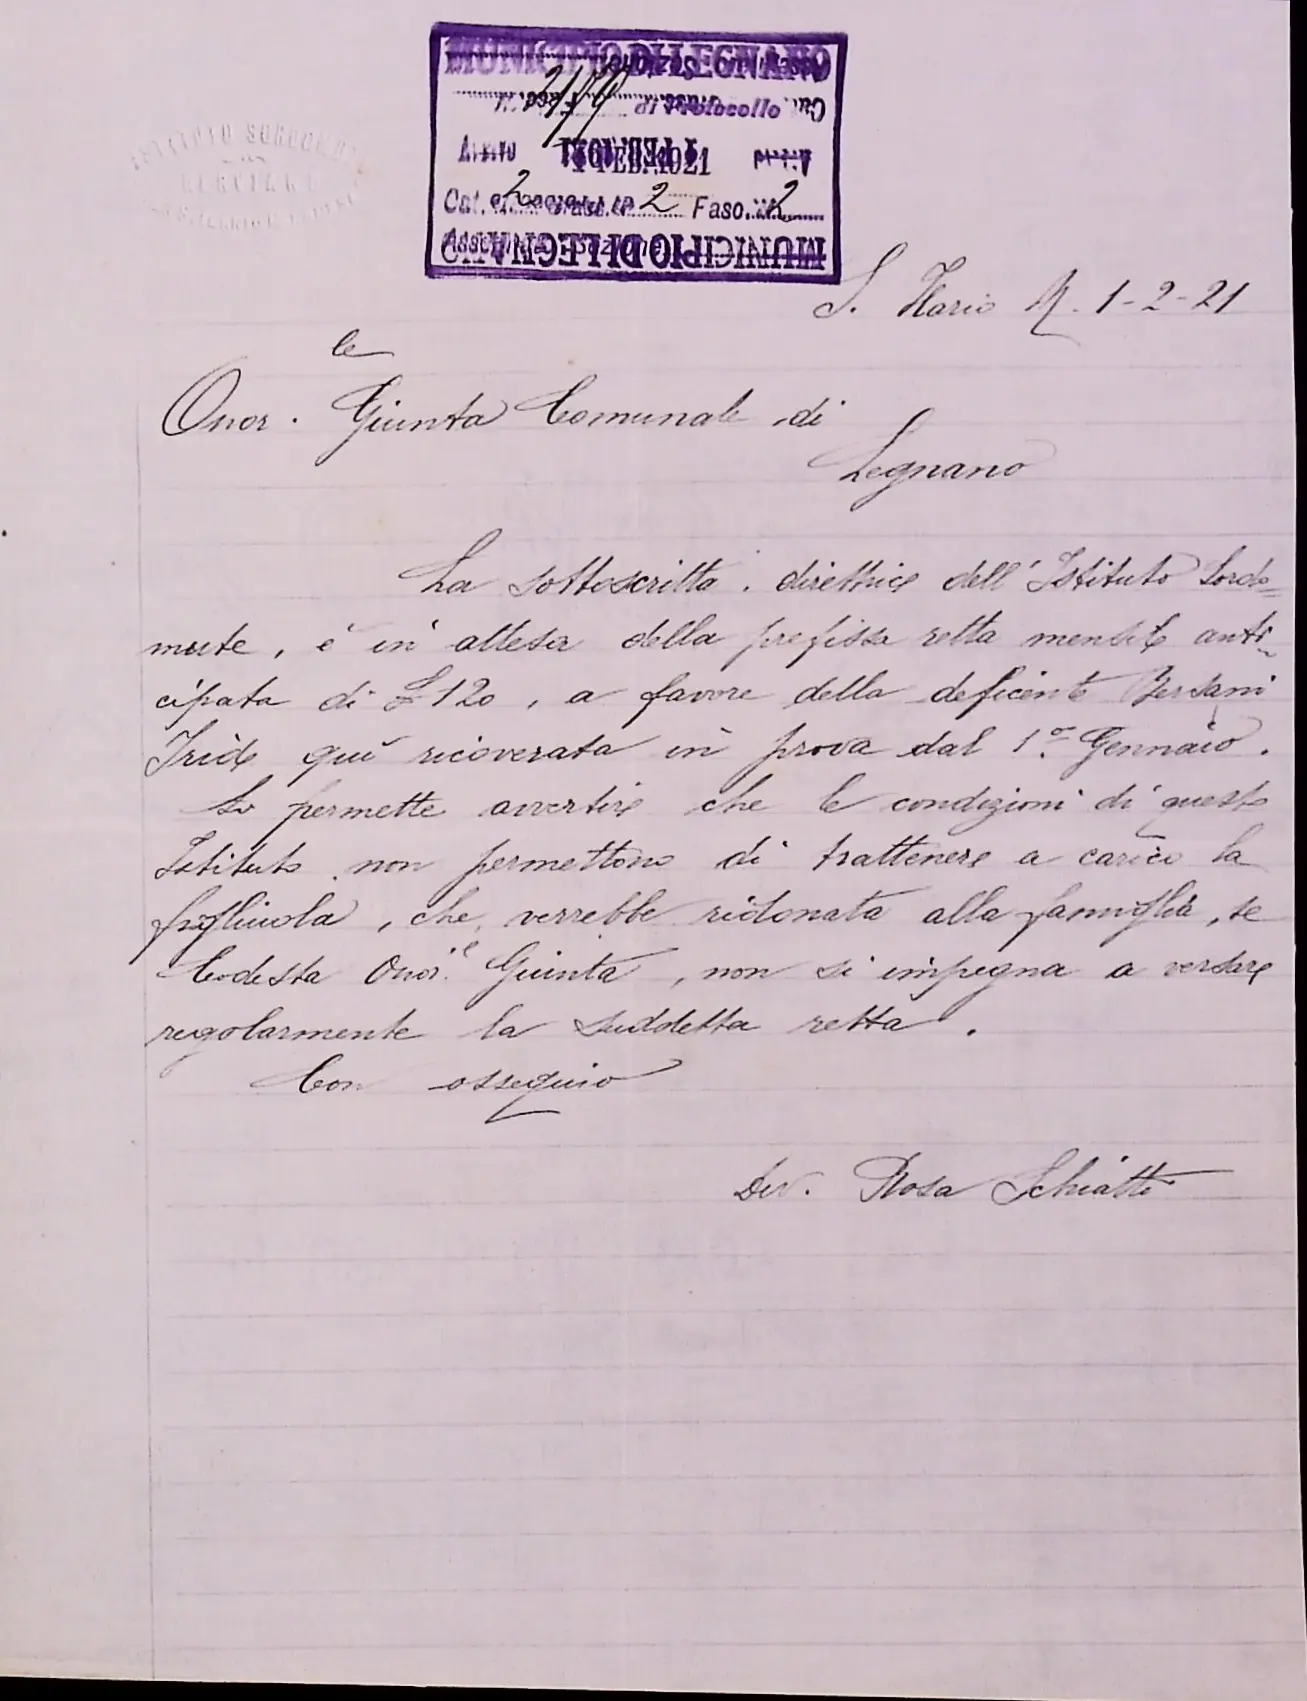 MUNICIPIO DI LEGNANO
di Protocollo
Arrivo
FEB. 1921
Cat. 2 Classe 2 Fasc. 2
MUNICIPIO DI LEGNANO
ISTITUTO SORDOMUTE
S. Ilario M. 1-2-21
Onor.le Giunta Comunale di
Legnano
La sottoscritta direttrice dell'Istituto Sordo=
mute, è in attesa della prefissa retta mensile anti
cipata di £ 120, a favore della deficiente Bersani
Iride quì ricoverata in prova dal 1° Gennaio.
permette avvertire che le condizioni di questo
Istituto non permettono di trattenere a carico la
figliuola, che verrebbe ridonata alla famiglia, se
Codesta Onor.le Giunta, non si impegna a versare
regolarmente la suddetta retta.
Con ossequio
Dev. Rosa Schiatti